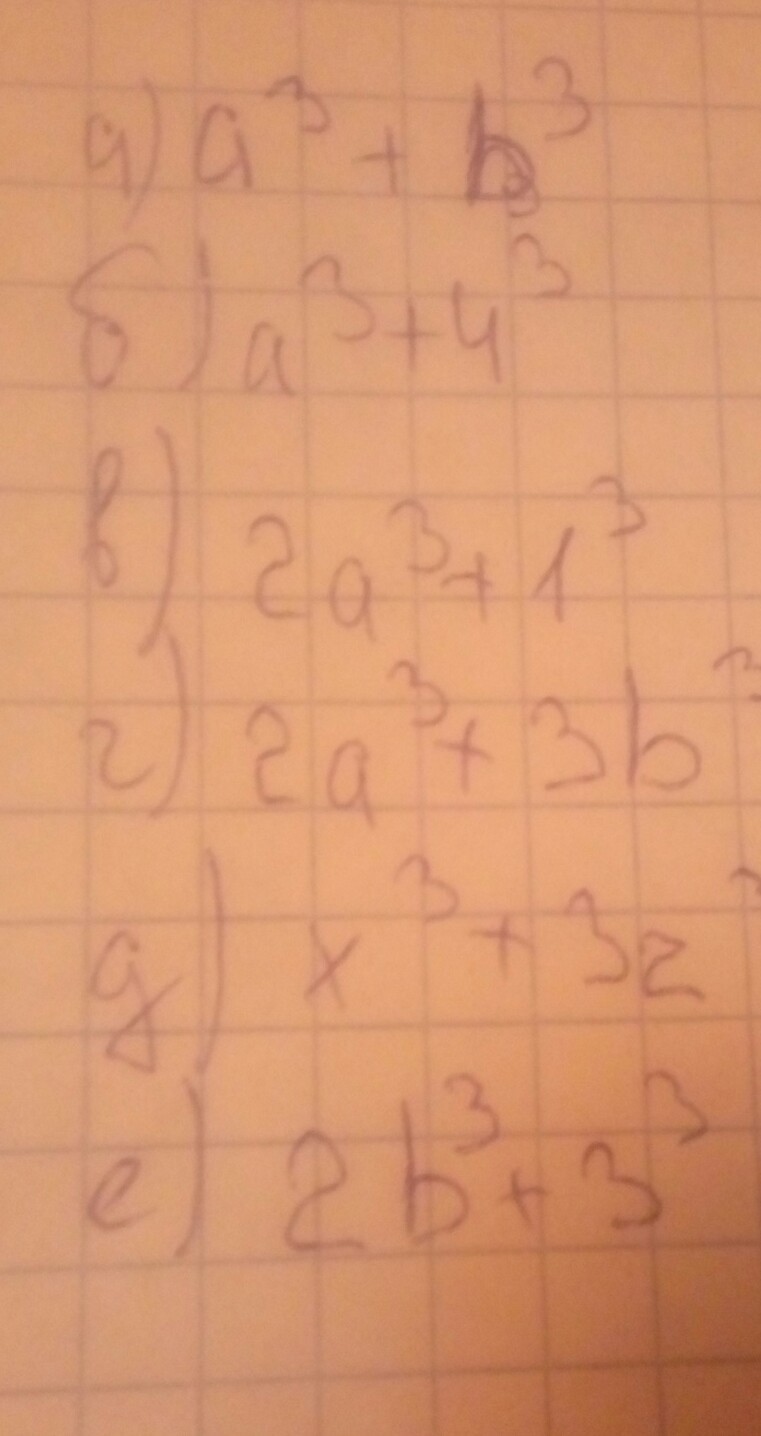 а) a³ + b³
б) a³ + 4³
в) 2a³ + 1³
г) 2a³ + 3b³
д) x³ + 3z³
е) 2b³ + 3³